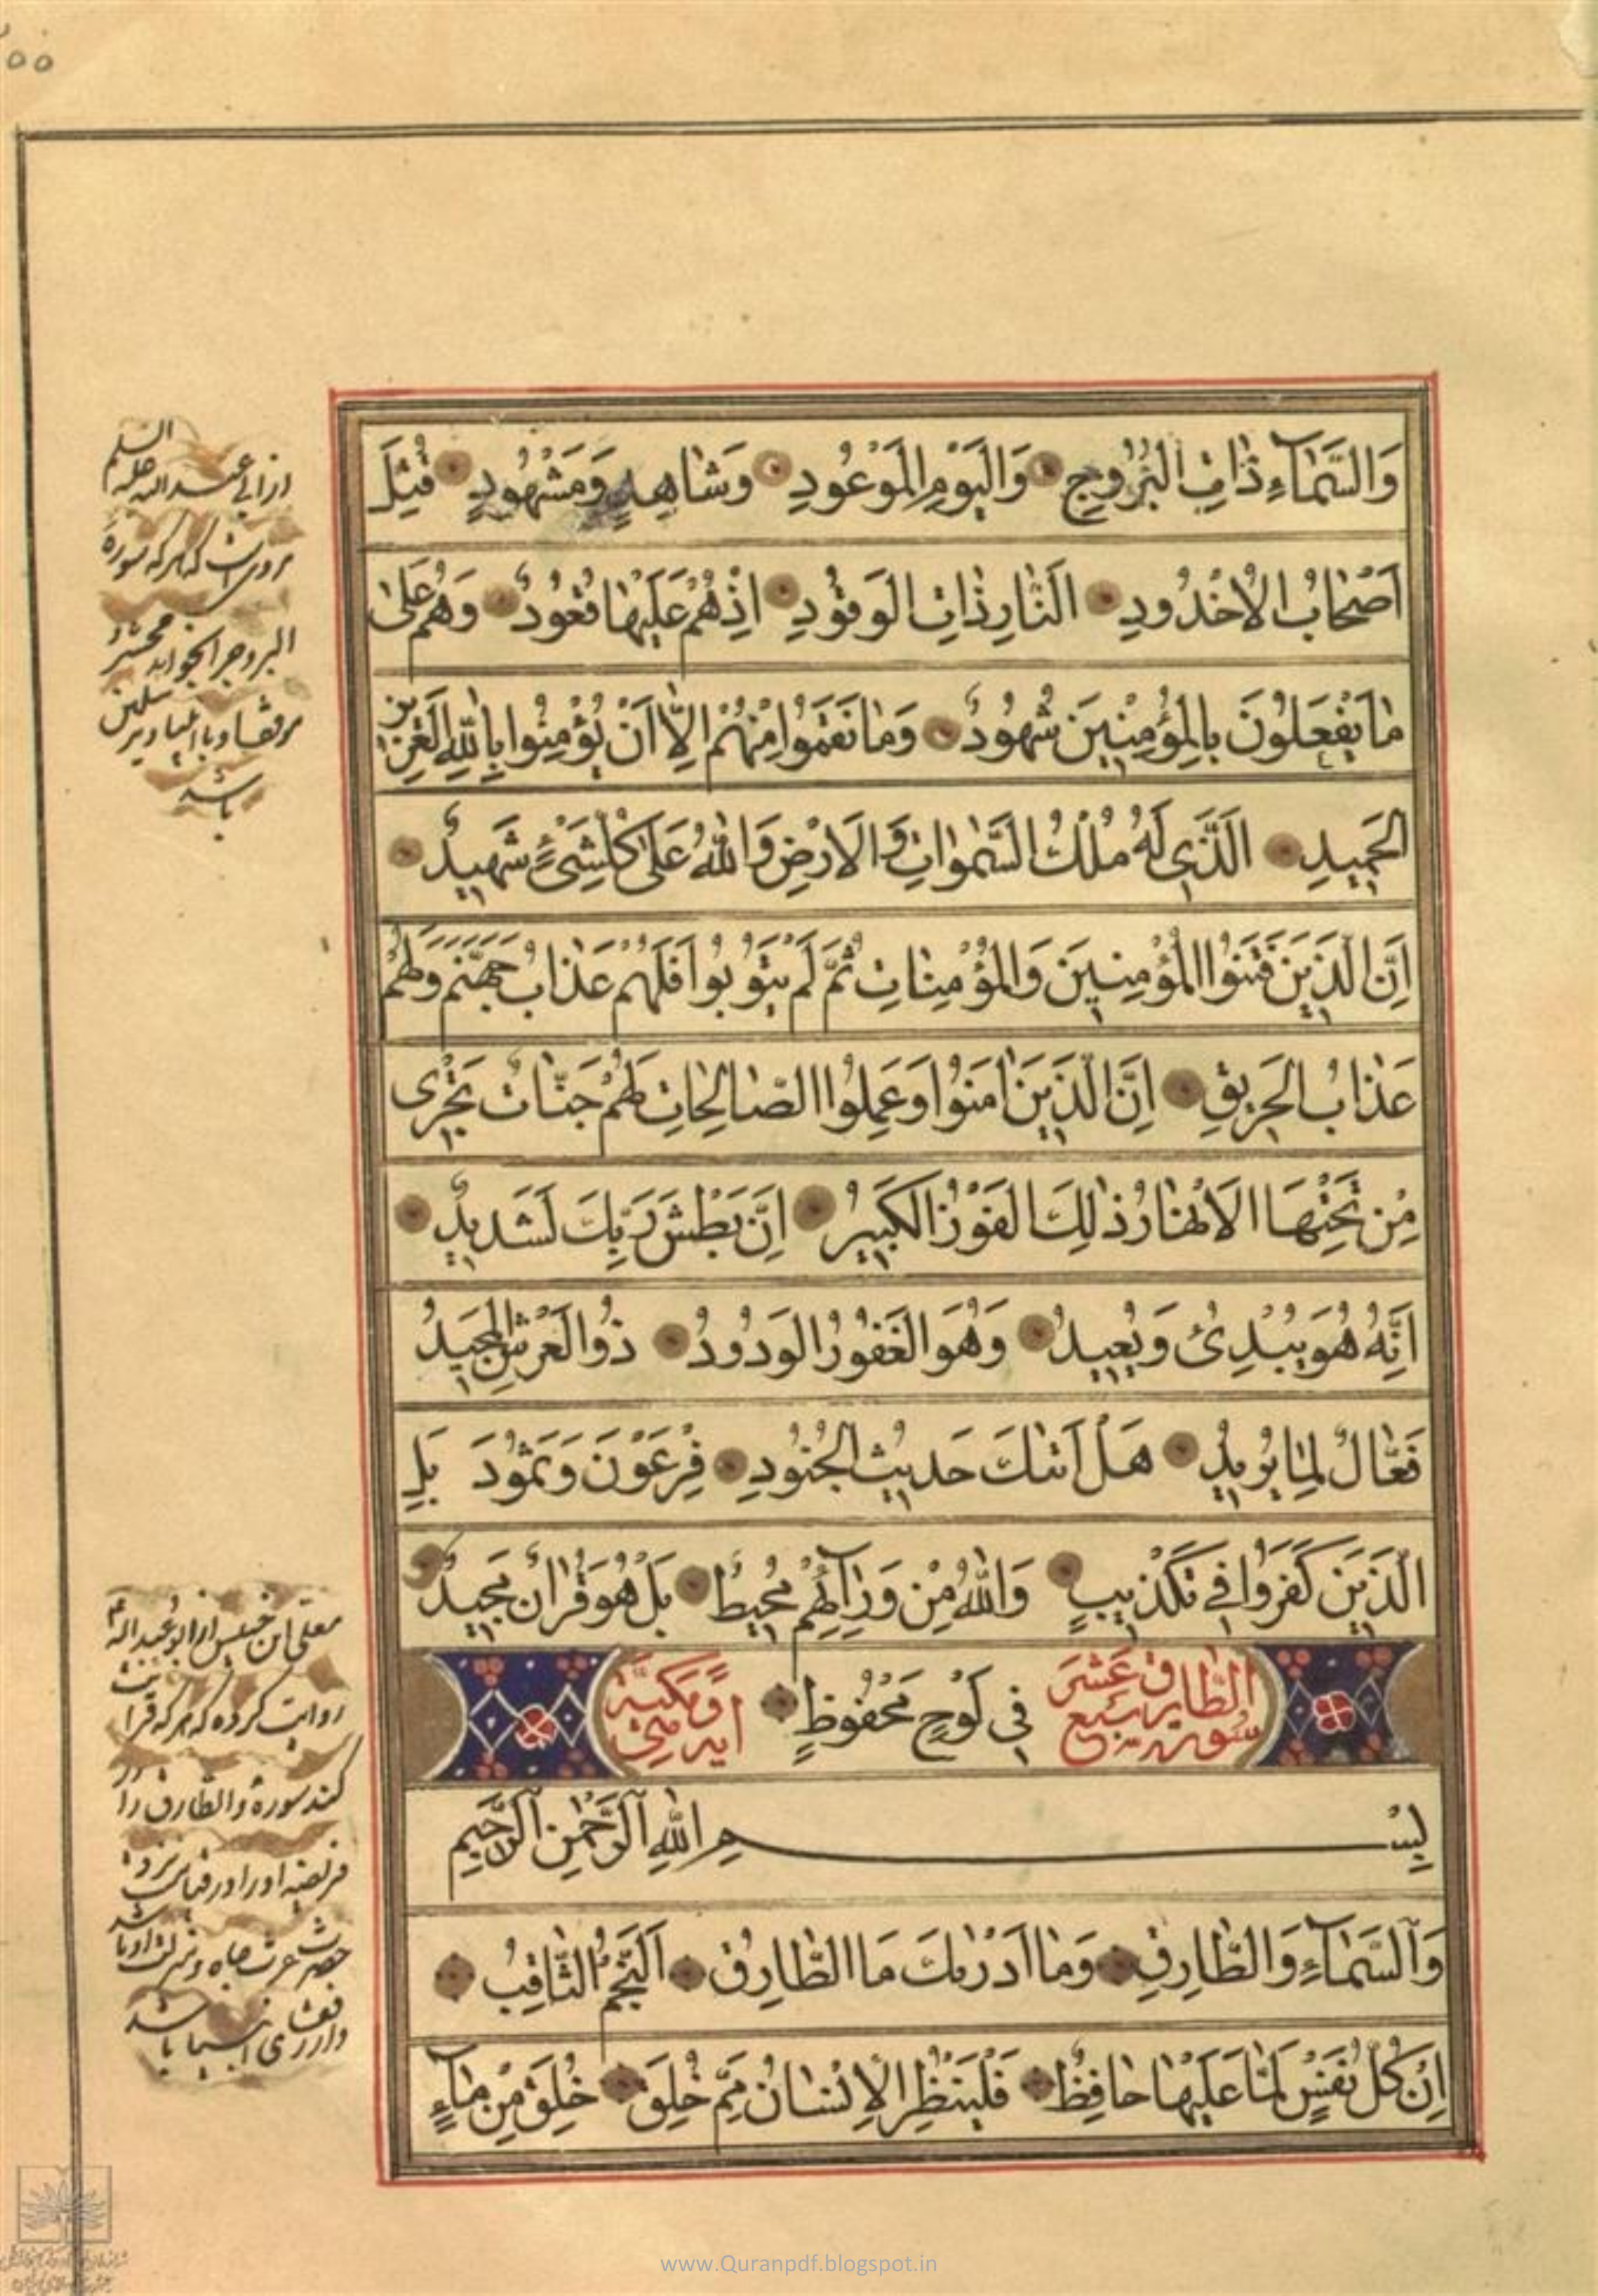 وَالسَّمَآءِ ذَاتِ الْبُرُوجِ وَالْيَوْمِ الْمَوْعُودِ وَشَاهِدٍ وَمَشْهُودٍ قُتِلَ
اَصْحَابُ الْاُخْدُودِ اَلنَّارِ ذَاتِ الْوَقُودِ اِذْ هُمْ عَلَيْهَا قُعُودٌ وَهُمْ عَلىٰ
مَا يَفْعَلُونَ بِالْمُؤْمِنِينَ شُهُودٌ وَمَا نَقَمُوا مِنْهُمْ اِلَّا اَنْ يُؤْمِنُوا بِاللّٰهِ الْعَزِيزِ
الْحَمِيدِ اَلَّذِى لَهُ مُلْكُ السَّمٰوَاتِ وَالْاَرْضِ وَاللّٰهُ عَلىٰ كُلِّ شَىْءٍ شَهِيدٌ
اِنَّ الَّذِينَ فَتَنُوا الْمُؤْمِنِينَ وَالْمُؤْمِنَاتِ ثُمَّ لَمْ يَتُوبُوا فَلَهُمْ عَذَابُ جَهَنَّمَ وَلَهُمْ
عَذَابُ الْحَرِيقِ اِنَّ الَّذِينَ اٰمَنُوا وَعَمِلُوا الصَّالِحَاتِ لَهُمْ جَنَّاتٌ تَجْرِى
مِنْ تَحْتِهَا الْاَنْهَارُ ذٰلِكَ الْفَوْزُ الْكَبِيرُ اِنَّ بَطْشَ رَبِّكَ لَشَدِيدٌ
اِنَّهُ هُوَ يُبْدِئُ وَيُعِيدُ وَهُوَ الْغَفُورُ الْوَدُودُ ذُوالْعَرْشِ الْمَجِيدُ
فَعَّالٌ لِمَا يُرِيدُ هَلْ اَتٰىكَ حَدِيثُ الْجُنُودِ فِرْعَوْنَ وَثَمُودَ بَلِ
الَّذِينَ كَفَرُوا فِى تَكْذِيبٍ وَاللّٰهُ مِنْ وَرَآئِهِمْ مُحِيطٌ بَلْ هُوَ قُرْاٰنٌ مَجِيدٌ
سورة الطارق سبع عشر
فِى لَوْحٍ مَحْفُوظٍ
اية وهى مكية
بِسْمِ اللّٰهِ الرَّحْمٰنِ الرَّحِيمِ
وَالسَّمَآءِ وَالطَّارِقِ وَمَا اَدْرٰىكَ مَا الطَّارِقُ اَلنَّجْمُ الثَّاقِبُ
اِنْ كُلُّ نَفْسٍ لَمَّا عَلَيْهَا حَافِظٌ فَلْيَنْظُرِ الْاِنْسَانُ مِمَّ خُلِقَ خُلِقَ مِنْ مَآءٍ
از ابى عبد الله عليه السلم
مرويست كه هركه سورة
البروج را بخواند محشر
باشد
معلى ابن خنيس از ابو عبد الله
روايت كرده كه هركه قرائت
كند سورة والطارق را
www.Quranpdf.blogspot.in